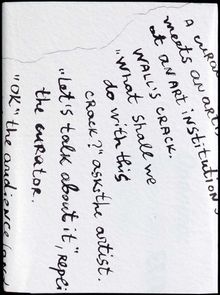 A
meets an
at an art institution
wall's crack.
"What shall we
do with this
crack?" asks the artist.
"Let's talk about it,"
the curator.
"OK" the audience